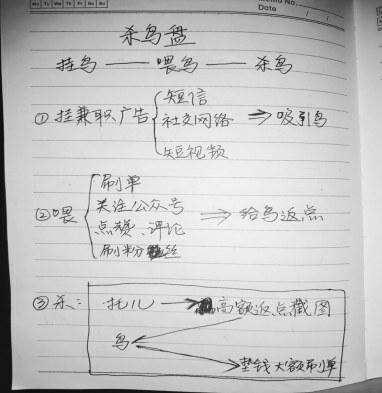 Mo Tu We Th Fr Sa Su
Memo No.
Date / /
杀鸟盘
挂鸟——喂鸟——杀鸟
①挂兼职广告{短信
社交网络 ⇒吸引鸟
短视频
②喂{刷单
关注公众号 ⇒给鸟返点
点赞、评论
刷粉丝
③杀: 托儿→高额返点截图
鸟
垫钱大额刷单